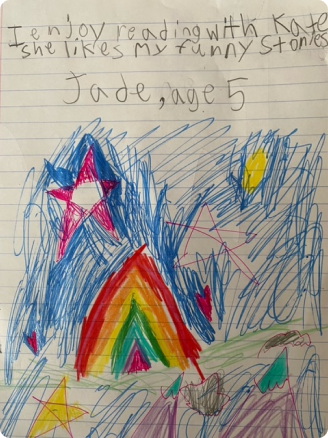 I enjoy reading with Kate
she likes my funny stories
Jade, age 5